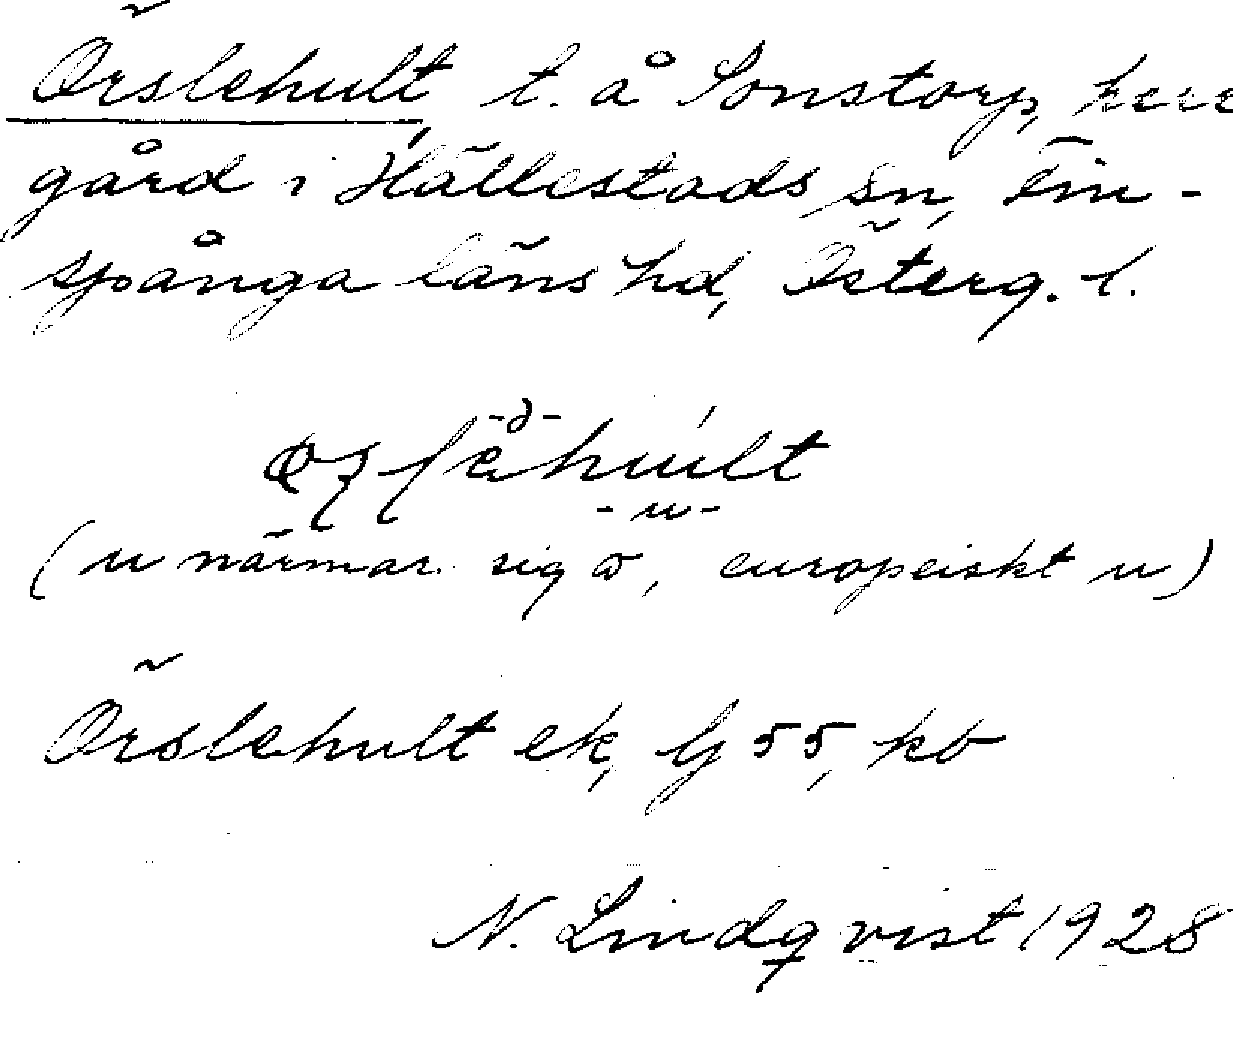 Örslehult, t. å Sonstorp, herr
gård i Hällestads sn, Fin-
spånga läns hd, Österg. l.
-ə-
hult
-u-
(u närmar sig ω, europeiskt u)
Örslehult ek, Gj 55, kb
N. Lindqvist 1928